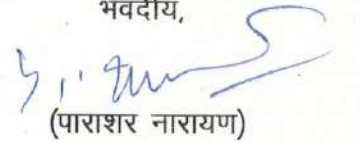 भवदीय,
(पाराशर नारायण)